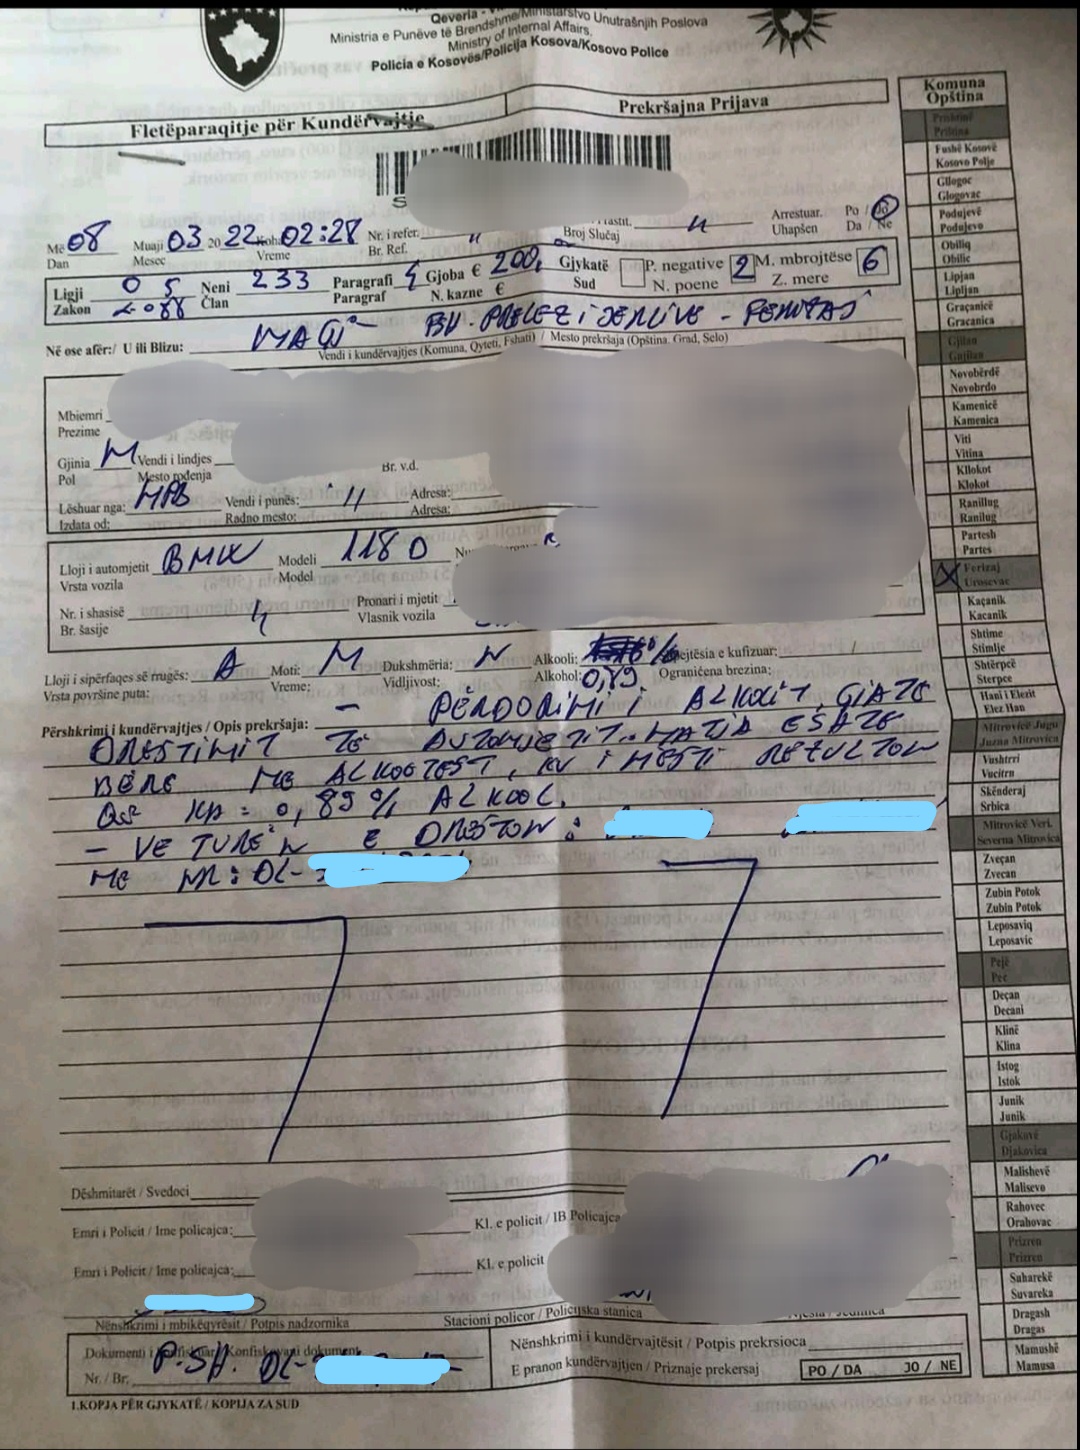 Qeveria -
Ministria e Punëve të Brendshme/Ministarstvo Unutrašnjih Poslova
Ministry of Internal Affairs,
Policia e Kosovës/Policija Kosova/Kosovo Police
Fletëparaqitje për Kundërvajtje
Prekršajna Prijava
S
Më 08 Muaji 03 2022 Koha 02:28 Nr. i refer. " Arrestuar. Po / Jo
Dan Mesec Vreme Br. Ref. Broj Slučaj Uhapšen Da / Ne
Ligji 05 Neni 233 Paragrafi Gjoba € 200, Gjykatë P. negative 2 M. mbrojtëse 6
Zakon 088 Član Paragraf N. kazne € Sud N. poene Z. mere
Në ose afër:/ U ili Blizu:
Vendi i kundërvajtjes (Komuna, Qyteti, Fshati) / Mesto prekršaja (Opština. Grad, Selo)
Mbiemri
Prezime
Gjinia M Vendi i lindjes
Pol Mesto rođenja Br. v.d.
Lëshuar nga: MPB Vendi i punës: " Adresa:
Izdata od: Radno mesto: Adresa:
Lloji i automjetit BMW Modeli 118D
Vrsta vozila Model
Nr. i shasisë Pronari i mjetit
Br. šasije Vlasnik vozila
Lloji i sipërfaqes së rrugës: A Moti: M Dukshmëria: N Alkooli: Shpejtësia e kufizuar: /
Vrsta površine puta: Vreme: Vidljivost: Alkohol: 0,89 Ograničena brezina:
Përshkrimi i kundërvajtjes / Opis prekršaja: - PËRDORIMI I ALKOOLIT GJATË
DREJTIMIT TË AUTOMJETIT. MATJA ËSHTË
BËRË ME ALKOOTEST, KU I NJËJTI REZULTON
QË KA = 0,89% ALKOOL.
- VETURËN E DREJTON:
ME NR: DL-
Dëshmitarët / Svedoci
Emri i Policit / Ime policajca: Kl. e policit / IB Policajca
Emri i Policit / Ime policajca: Kl. e policit
Nënshkrimi i mbikëqyrësit / Potpis nadzornika Stacioni policor / Policijska stanica
Dokumenti i
Konfiskovani dokument P.SH. DL-
Nr. / Br:
Nënshkrimi i kundërvajtësit / Potpis prekrsioca
E pranon kundërvajtjen / Priznaje prekersaj PO / DA JO / NE
1.KOPJA PËR GJYKATË / KOPIJA ZA SUD
Komuna
Opština
Prishtinë
Priština
Fushë Kosovë
Kosovo Polje
Gllogoc
Glogovac
Podujevë
Podujevo
Obiliq
Obilic
Lipjan
Lipljan
Graçanicë
Gracanica
Gjilan
Gnjilan
Novobërdë
Novobrdo
Kamenicë
Kamenica
Viti
Vitina
Kllokot
Klokot
Ranillug
Ranilug
Partesh
Partes
X Ferizaj
Urosevac
Kaçanik
Kacanik
Shtime
Stimlje
Shtërpcë
Sterpce
Hani i Elezit
Elez Han
Mitrovicë Jugu
Juzna Mitrovica
Vushtrri
Vucitrn
Skënderaj
Srbica
Mitrovicë Veri.
Severna Mitrovica
Zveçan
Zvecan
Zubin Potok
Zubin Potok
Leposaviq
Leposavic
Pejë
Pec
Deçan
Decani
Klinë
Klina
Istog
Istok
Junik
Junik
Gjakovë
Djakovica
Malishevë
Malisevo
Rahovec
Orahovac
Prizren
Prizren
Suharekë
Suvareka
Dragash
Dragas
Mamushë
Mamusa